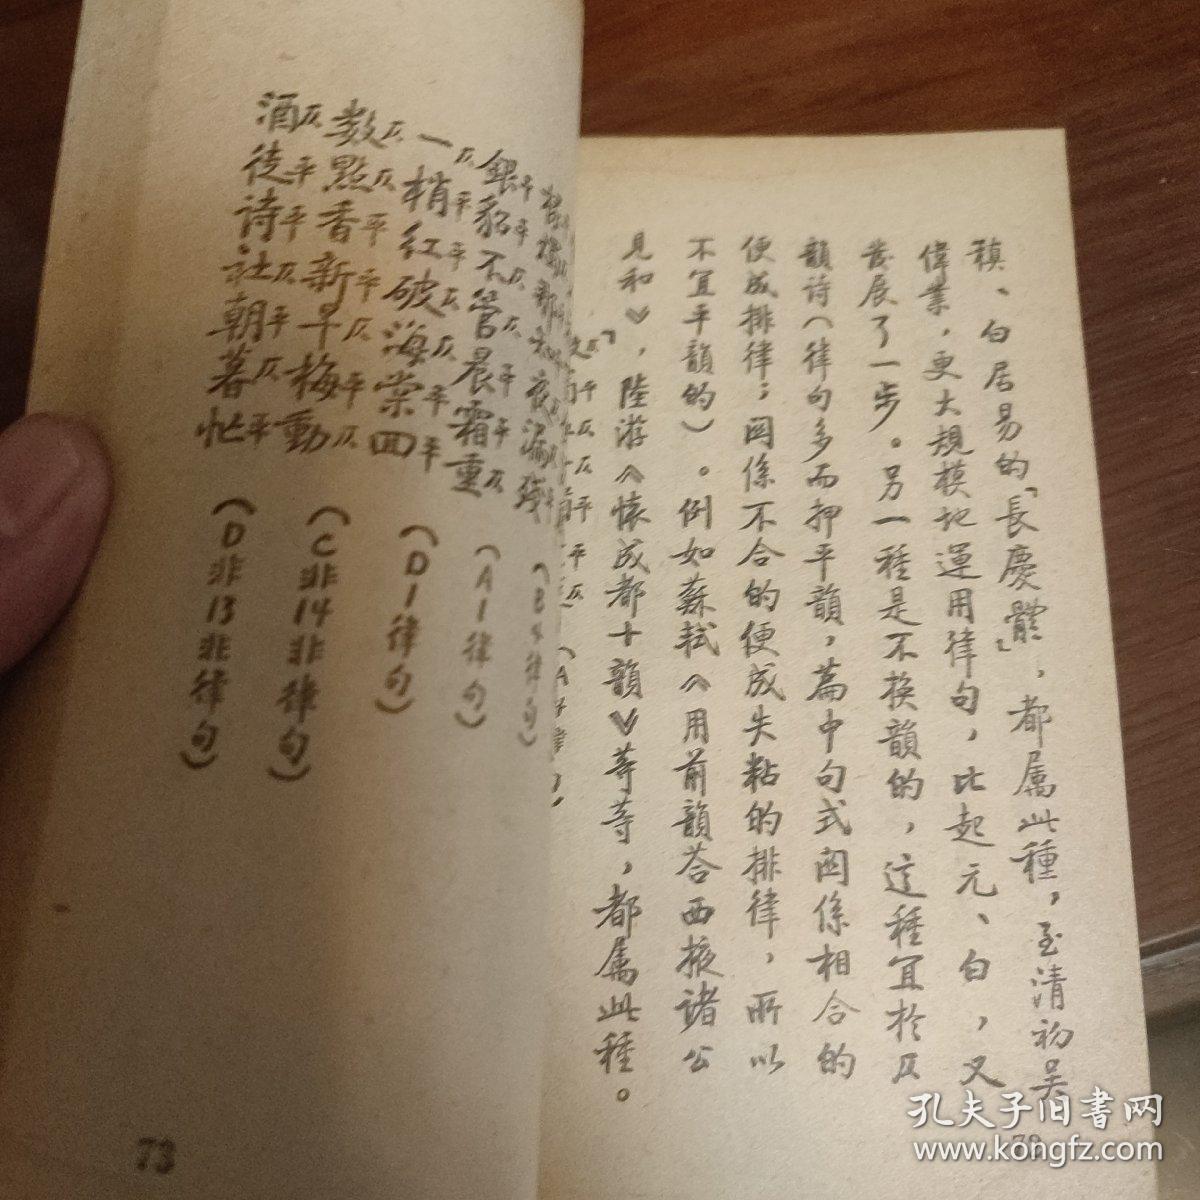 稹、白居易的「長慶體」，都属此種，至清初吴
偉業，更大規模地運用律句，比起元、白，又
發展了一步。另一種是不换韻的，这種宜於仄
韻诗（律句多而押平韻，篇中句式関係相合的
便成排律；関係不合的便成失粘的排律，所以
不宜平韻的）。例如蘇轼《用前韻荅西掖諸公
見和》，陸游《懐成都十韻》等等，都属此種。
銀平貂平不仄管仄晨平霜平重仄（A1律句）
一仄梢平红平破仄海仄棠平四平（D1律句）
数仄點仄香平新平早仄梅平動仄（C非14非律句）
酒仄徒平诗平社仄朝平暮仄忙平（D非13非律句）
73
孔夫子旧書网
www.kongfz.com